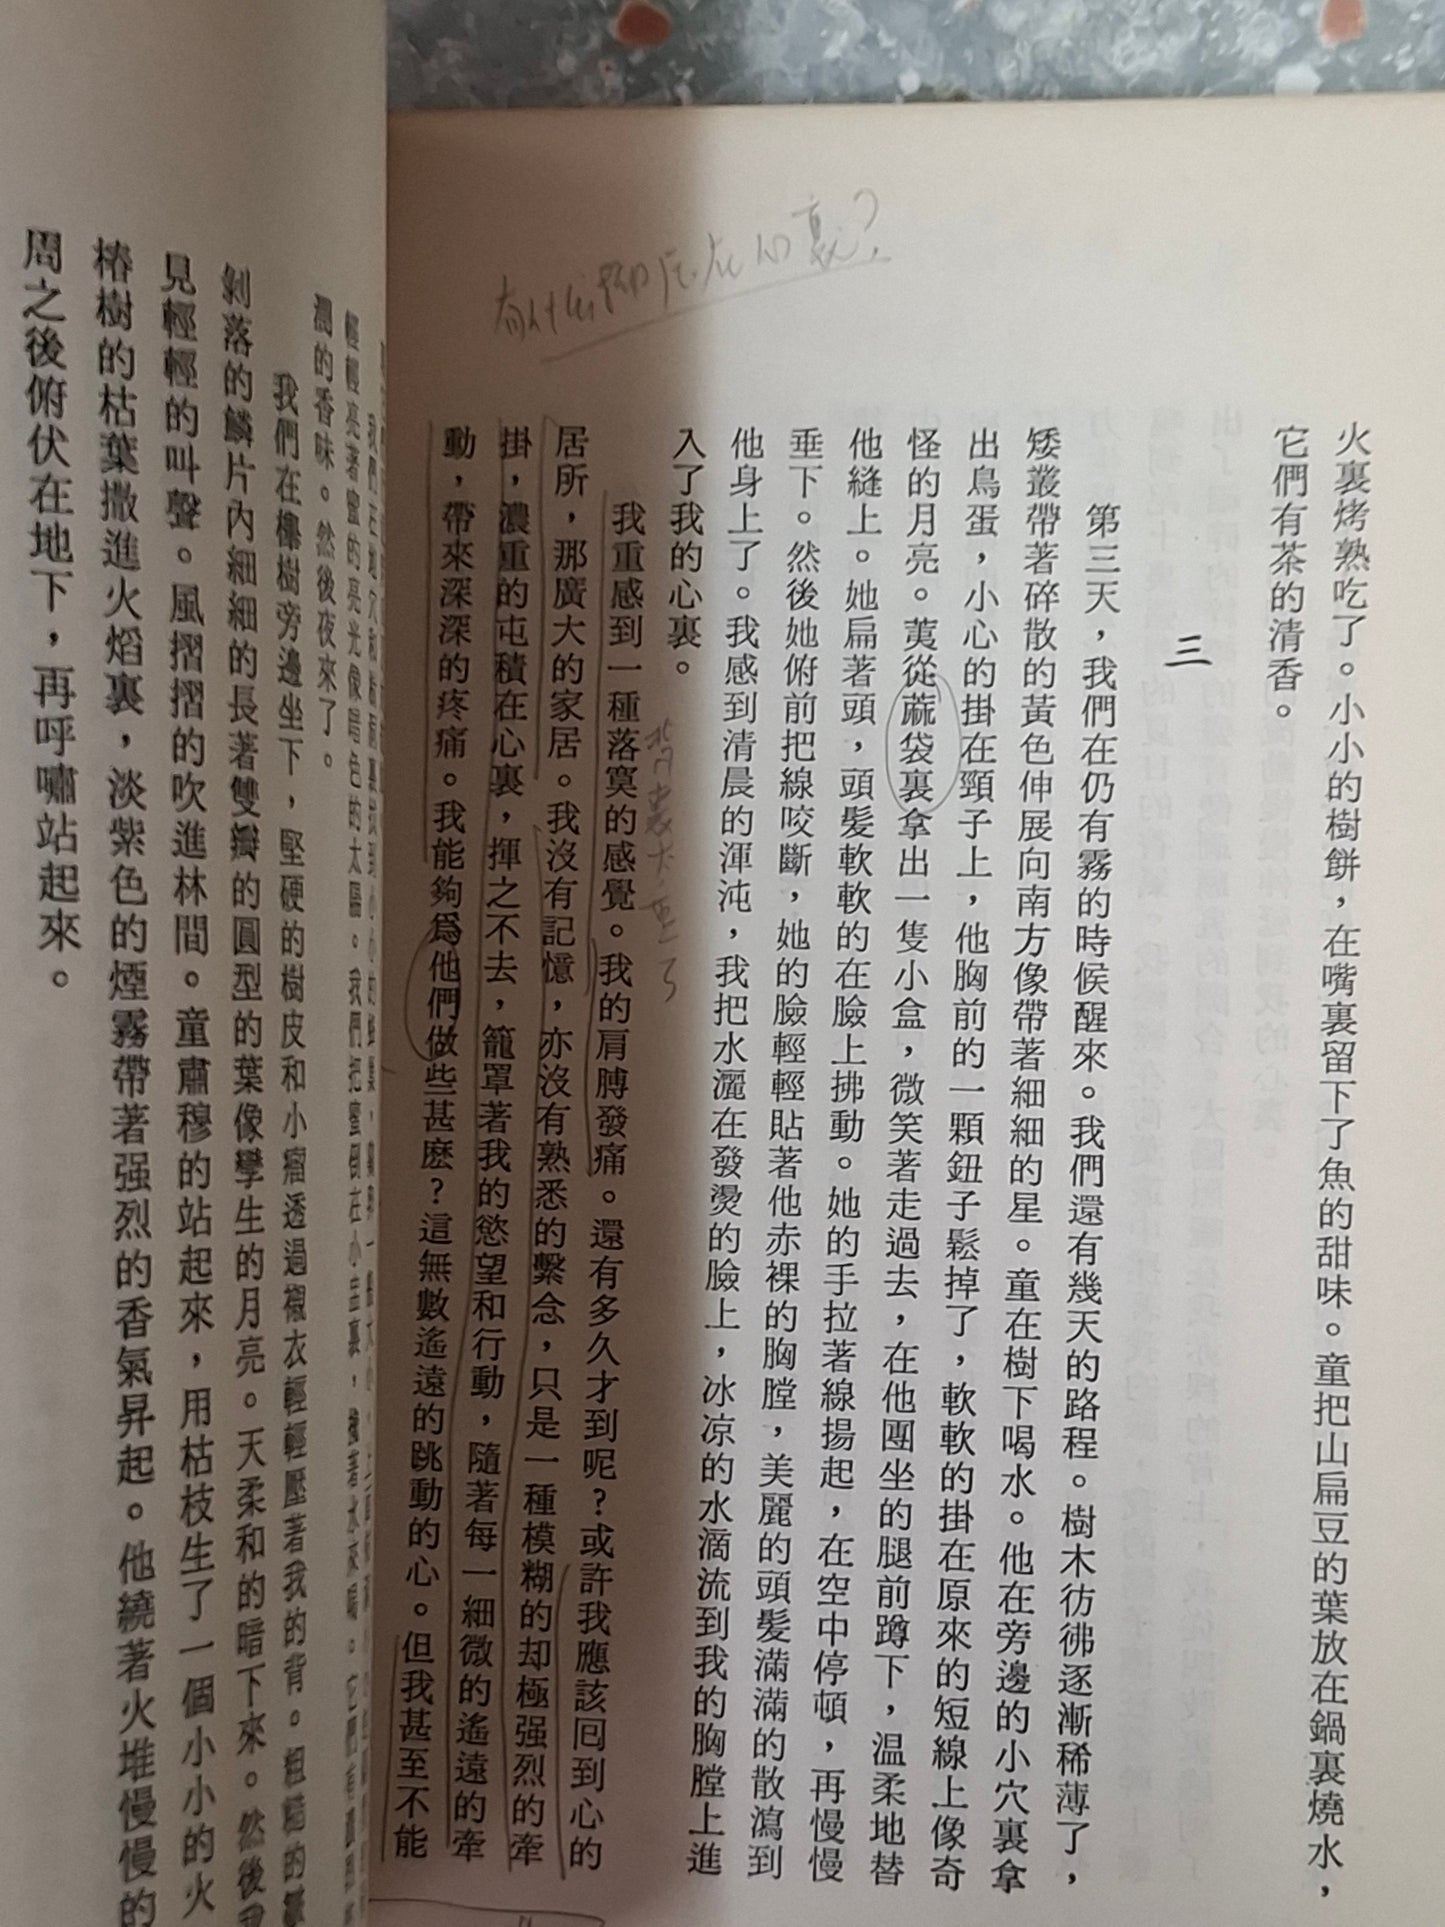 有什么即压在心裏？
火裏烤熟吃了。小小的樹餅，在嘴裏留下了魚的甜味。童把山扁豆的葉放在鍋裏燒水，
它們有茶的清香。
三
第三天，我們在仍有霧的時候醒來。我們還有幾天的路程。樹木彷彿逐漸稀薄了，
矮叢帶著碎散的黃色伸展向南方像帶著細細的星。童在樹下喝水。他在旁邊的小穴裏拿
出鳥蛋，小心的掛在頸子上，他胸前的一顆鈕子鬆掉了，軟軟的掛在原來的短線上像奇
怪的月亮。荑從蔴袋裏拿出一隻小盒，微笑著走過去，在他團坐的腿前蹲下，温柔地替
他縫上。她扁著頭，頭髮軟軟的在臉上拂動。她的手拉著線揚起，在空中停頓，再慢慢
垂下。然後她俯前把線咬斷，她的臉輕輕貼著他赤裸的胸膛，美麗的頭髮滿滿的散瀉到
他身上了。我感到清晨的渾沌，我把水灑在發燙的臉上，冰凉的水滴流到我的胸膛上進
入了我的心裏。
我重感到一種落寞的感覺。我的肩膊發痛。還有多久才到呢？或許我應該囘到心的
居所，那廣大的家居。我沒有記憶，亦沒有熟悉的繫念，只是一種模糊的却極强烈的牽
掛，濃重的屯積在心裏，揮之不去，籠罩著我的慾望和行動，隨著每一細微的遙遠的牽
動，帶來深深的疼痛。我能夠爲他們做些甚麽？這無數遙遠的跳動的心。但我甚至不能
潤的香味。然後夜來了。
我們在櫸樹旁邊坐下，堅硬的樹皮和小瘤透過襯衣輕輕壓著我的背。粗糙的
剝落的鱗片內細細的長著雙瓣的圓型的葉像孿生的月亮。天柔和的暗下來。然後我
見輕輕的叫聲。風摺摺的吹進林間。童肅穆的站起來，用枯枝生了一個小小的火
椿樹的枯葉撒進火焰裏，淡紫色的煙霧帶著强烈的香氣昇起。他繞著火堆慢慢的
周之後俯伏在地下，再呼嘯站起來。